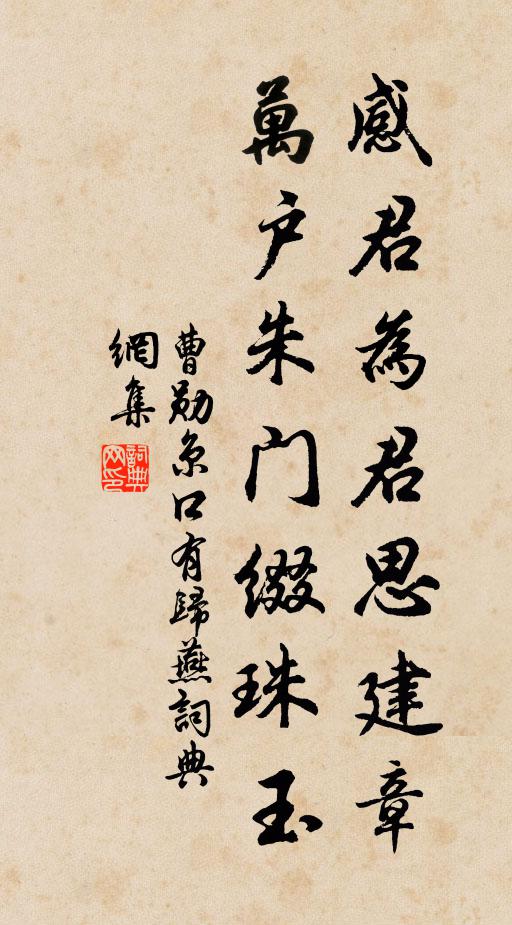 感君為君思建章
萬户朱门缀珠玉
曹勛京口有歸燕詞典
網集
詞典网印